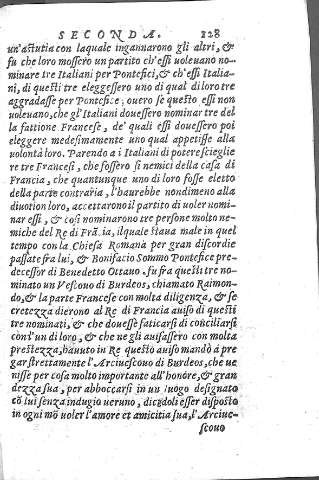 SECONDA. 128
un'astutia con laquale ingannarono gli altri, &
fu che loro mossero un partito ch'essi uoleuano no-
minare tre Italiani per Pontefici, & ch'essi Italia-
ni, di questi tre eleggessero uno di qual di loro tre
aggradasse per Pontefice; ouero se questo essi non
uoleuano, che gl'Italiani douessero nominar tre del
la fattione Francese, de' quali essi douessero poi
eleggere medesimamente uno qual appetisse alla
uolontà loro. Parendo a i Italiani di potere scieglie
re tre Francesi, che fossero sì nemici della casa di
Francia, che quantunque uno di loro fosse eletto
della parte contraria, l'haurebbe nondimeno alla
diuotion loro, accettarono il partito di uoler nomi-
nar essi, & così nominarono tre persone molto ne-
miche del Re di Frācia, ilquale staua male in quel
tempo con la Chiesa Romana per gran discordie
passate fra lui, & Bonifacio Sommo Pontefice pre-
decessor di Benedetto Ottauo. fu fra questi tre no-
minato un Vescouo di Burdeos, chiamato Raimon-
do, & la parte Francese con molta diligenza, & se
cretezza dierono al Re di Francia auiso di questi
tre nominati, & che douesse faticarsi di conciliarsi
con l'un di loro, & che ne gli auisassero con molta
prestezza, hauuto in Re questo auiso mandò à pre
gar strettamente l'Arciuescouo di Burdeos, che ue
nisse per cosa molto importante all'honore, & gran
dezza sua, per abboccarsi in un luogo designato
cō lui senza indugio ueruno, dicēdoli esser disposto
in ogni mō uoler l'amore et amicitia sua, l'Arciue-
scouo